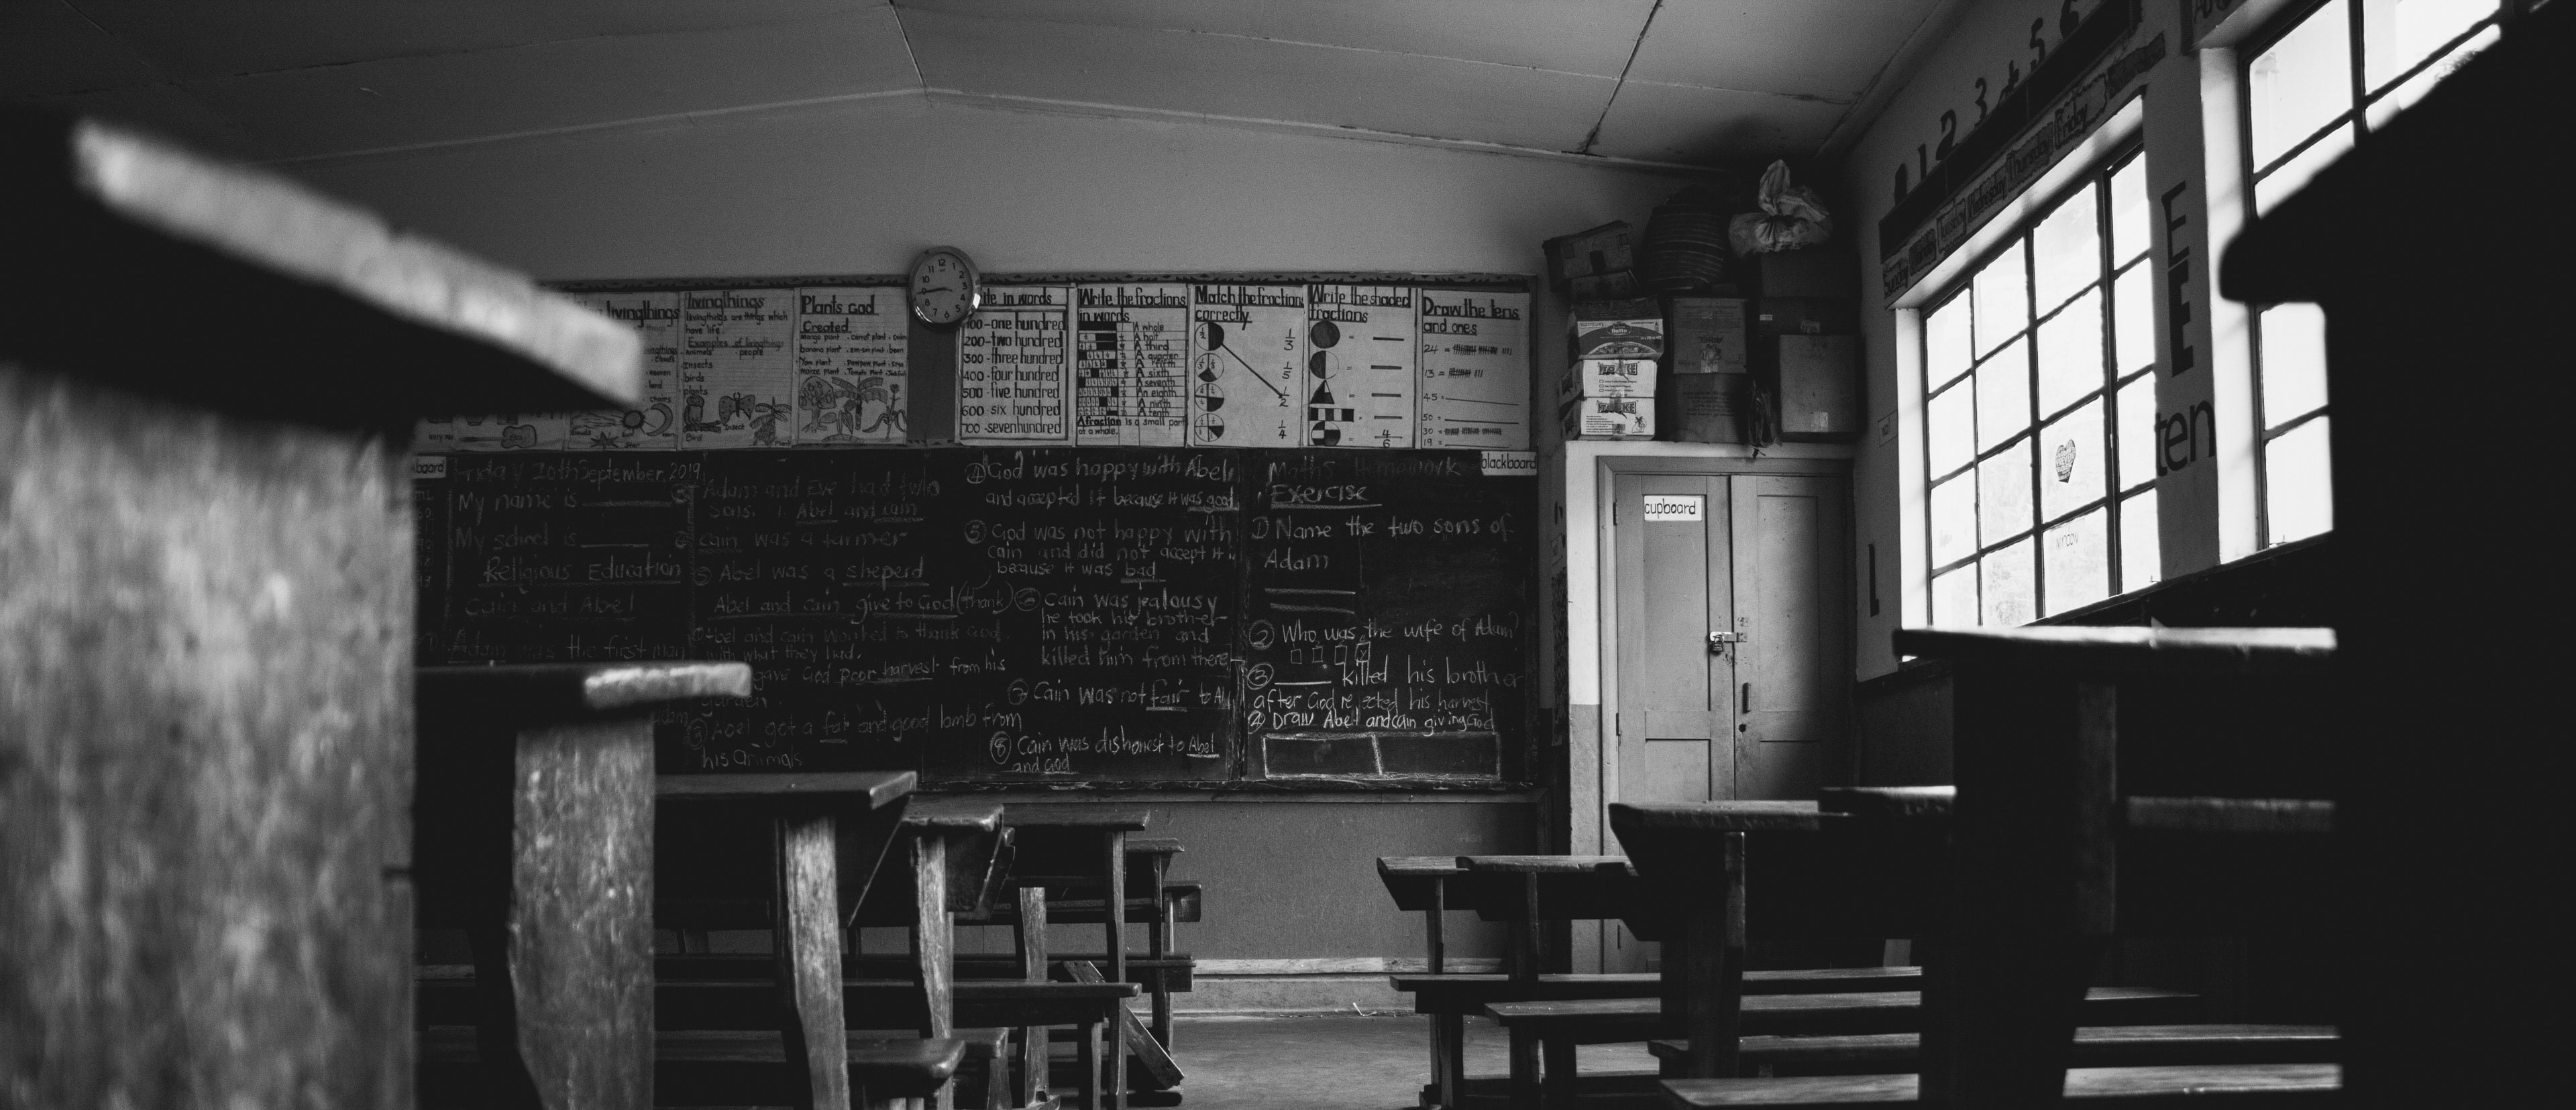 livingthings
livingthings
livingthings are things which
have life.
Examples of livingthings
animals people
insects
birds
plants
Bird
Insect
Plants God
Created
banana plant
maize plant
in words
100-one hundred
200-two hundred
300-three hundred
400-four hundred
500-five hundred
600-six hundred
700-sevenhundred
Write the fractions
in words
A whole
A half
A third
A quarter
A fifth
A sixth
A seventh
An eighth
A ninth
A tenth
A fraction is a small part
of a whole.
Match the fractions
correctly
1/3
1/5
1/2
1/4
Write the shaded
fractions
= 
= 
= 
= 4/6
Draw the tens
and ones
24 =
13 =
45 =
50 =
30 =
19 =
12
1
2
3
4
5
6
7
8
9
10
11
board
Friday 20th September, 2019
My name is
My school is
Religious Education
Cain and Abel
Adam was the first man
Adam and Eve had two
sons. 1. Abel and cain
cain was a farmer
Abel was a sheperd
Abel and cain give to God (thank)
Abel and cain wanted to thank God
with what they had.
gave God poor harvest from his
garden
Abel got a fat and good lamb from
his Animals
④ God was happy with Abel
and accepted it because it was good
⑤ God was not happy with
cain and did not accept it
because it was bad
⑥ Cain was jealousy
he took his brother
in his garden and
killed him from there
⑦ Cain was not fair to
⑧ Cain was dishonest to Abel
and God
blackboard
Maths homework
Exercise
1) Name the two sons of
Adam
② Who was the wife of Adam?
③ killed his brother
after God rejected his harvest
④ Draw Abel and cain giving God
cupboard
1 2 3 4 5 6
Sunday Tuesday Wednesday Thursday Friday
E
E
ten